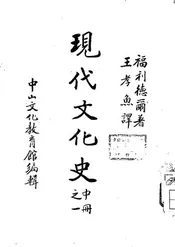 福利德爾著
王孝魚譯
現代文化史
中冊
之一
中山文化教育館編輯